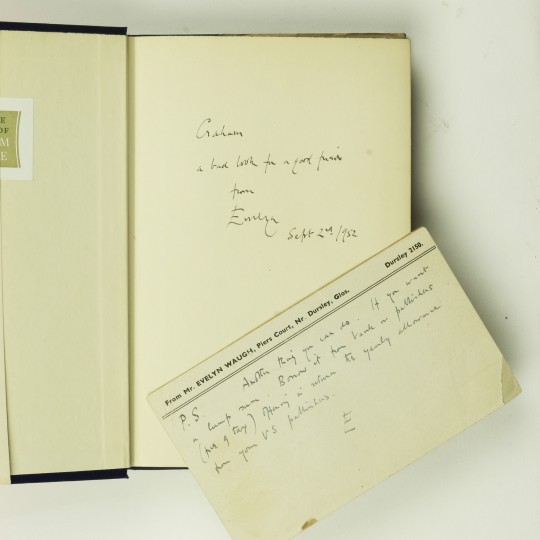 E
OF
M
E
Graham
a bad book for a good friend
from
Evelyn
Sept 2nd/1952
From Mr. EVELYN WAUGH, Piers Court, Nr. Dursley, Glos.
Dursley 2150.
P.S. Another thing you can do. If you want
a lump sum. Borrow it from bank or publishers
(free of tax) Having in return the yearly allowance
from your US publishers.
E